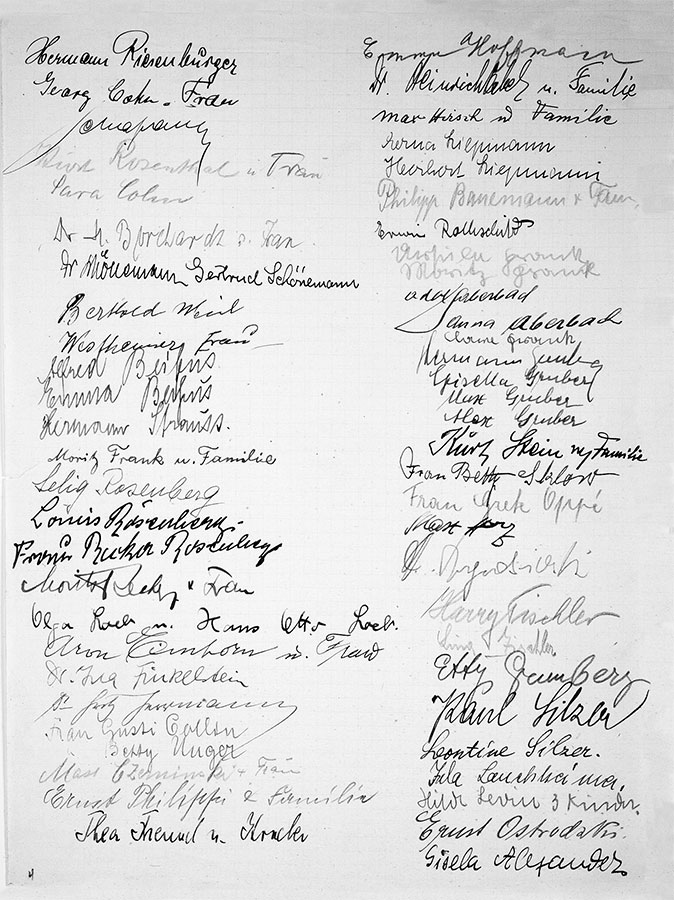 Hermann Riesenburger
Georg Cohn - Frau
Kurt Rosenthal u Frau
Sara Cohn
Dr Borchardt u. Frau
Dr Schönemann Gertrud Schönemann
Berthold Weil
Westheimer Frau
Alfred Beifus
Emma Beifus
Hermann Strauss.
Moritz Frank u. Familie
Selig Rosenberg
Louis Rosenberg.
Frau Rosenberg
Moritz u Frau
Olga Loeb u. Hans Otto Loeb.
Aron Einhorn u. Frau
Dr. Ina Finkelstein
Dr Herrmann
Frau Gusti Collin
Betty Unger
Max Czerninski u Frau
Ernst Philippi & Familie
Thea Freund u. Kinder
4
Emma Hoffmann
Dr. Heinrich u. Familie
Max Hirsch u Familie
Herna Liepmann
Herbert Liepmann
Philipp Bannemann & Frau,
Erwin Rothschild
Frank
Moritz Frank
Adolf Aberbach
Janna Aberbach
Claire Frank
Hermann Gruber
Gisella Gruber
Max Gruber
Alex Gruber
Kurt Stein u Familie
Frau Betty Sklow
Frau Grete Oppé
Max Herz
Dr.
Harry Fischler
Lina Fischler
Etty Gumberg
Karl Silzer
Leontine Silzer.
Ida
Hilde Levin 3 Kinder.
Ernst Ostrodzki.
Gisela Alexander